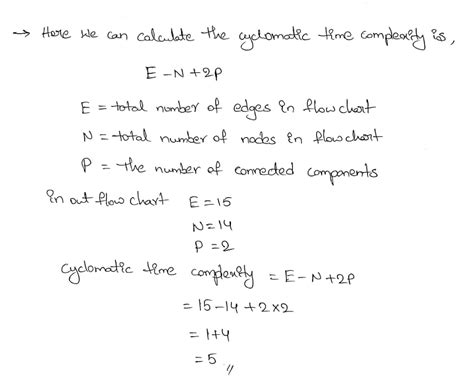 → Here we can calculate the cyclomatic time complexity is,
E - N + 2P
E = total number of edges in flow chart
N = total number of nodes in flow chart
P = the number of connected components
in out flow chart E = 15
N = 14
P = 2
cyclomatic time complexity = E - N + 2P
= 15 - 14 + 2 × 2
= 1 + 4
= 5 //